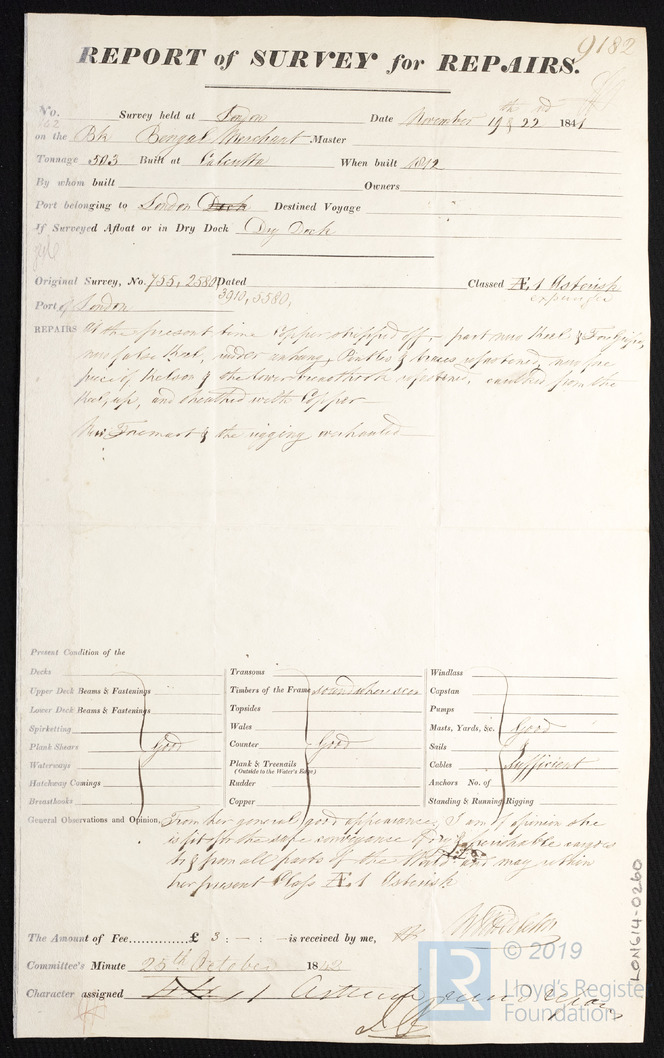 9182
REPORT of SURVEY for REPAIRS.
No. Survey held at Date November 19 & 22 1841
on the Bk Bengal Merchant Master
Tonnage 503 Built at Calcutta When built 1812
By whom built Owners
Port belonging to London Dock Destined Voyage
If Surveyed Afloat or in Dry Dock Dry Dock
Original Survey, No. 755, 2580 Dated Classed Æ 1 Asterisk
3910, 5580,
Port of London
REPAIRS At the present time Copper stripped off, part new Keel &
new false Keel, rudder unhung, Pintles & braces refastened, new fore
piece of Kelson & the lower refastened, caulked from the
Keel, up, and sheathed with Copper
New Foremast & the rigging overhauled
Present Condition of the
Decks
Upper Deck Beams & Fastenings
Lower Deck Beams & Fastenings
Spirketting
Plank Sheers Good
Waterways
Hatchway Comings
Breasthooks
Transoms
Timbers of the Frame sound where seen
Topsides
Wales
Counter Good
Plank & Treenails
(Outside to the Water's Edge)
Rudder
Copper
Windlass
Capstan
Pumps
Masts, Yards, &c. Good
Sails
Cables Sufficient
Anchors No. of
Standing & Running Rigging
General Observations and Opinion, From her general good appearance I am of opinion she
is fit for the safe conveyance of dry & perishable cargoes
to & from all parts of the World and may retain
her present Class Æ 1 Asterisk
The Amount of Fee..............£ 3 : — : — is received by me,
Committee's Minute 25th October 18
Character assigned
LON614-0260
LR
© 2019
Lloyd's Register
Foundation